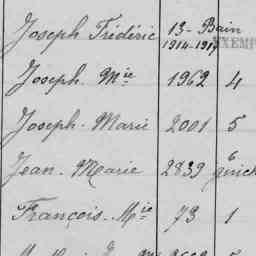 Joseph Frédéric 13 - Bain
1914-1917 EXEMP
Joseph Mie 1962 4
Joseph-Marie 2001 5
Jean-Marie 2839 6
François-Mie 73 1